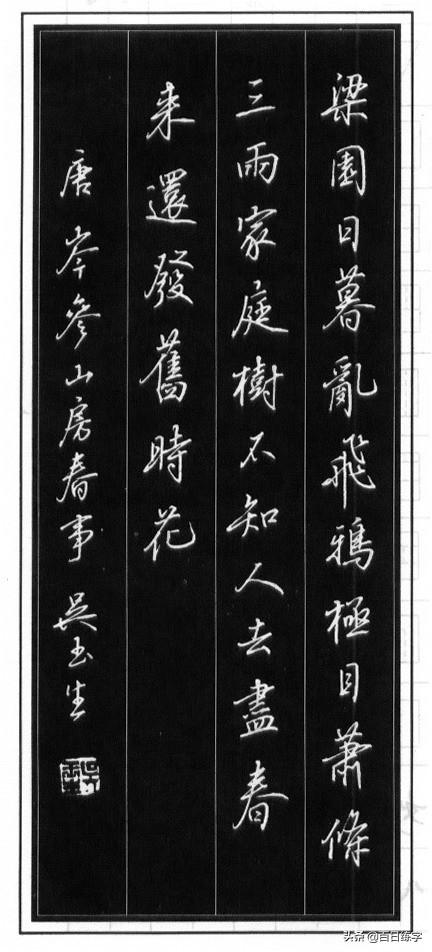 梁園日暮亂飛鴉極目蕭條
三兩家庭樹不知人去盡春
來還發舊時花
唐岑參山房春事 吳玉生
头条 @百日练字